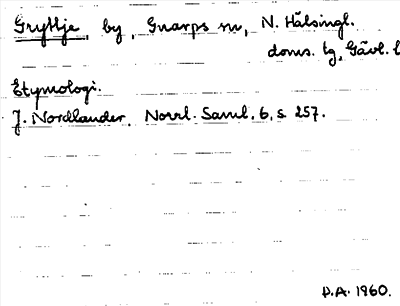 Gryttje, by, Gnarps sn, N. Hälsingl.
doms. tg, Gävl. l
Etymologi.
J. Nordlander, Norrl. Saml. 6, s. 257.
D.A. 1960.